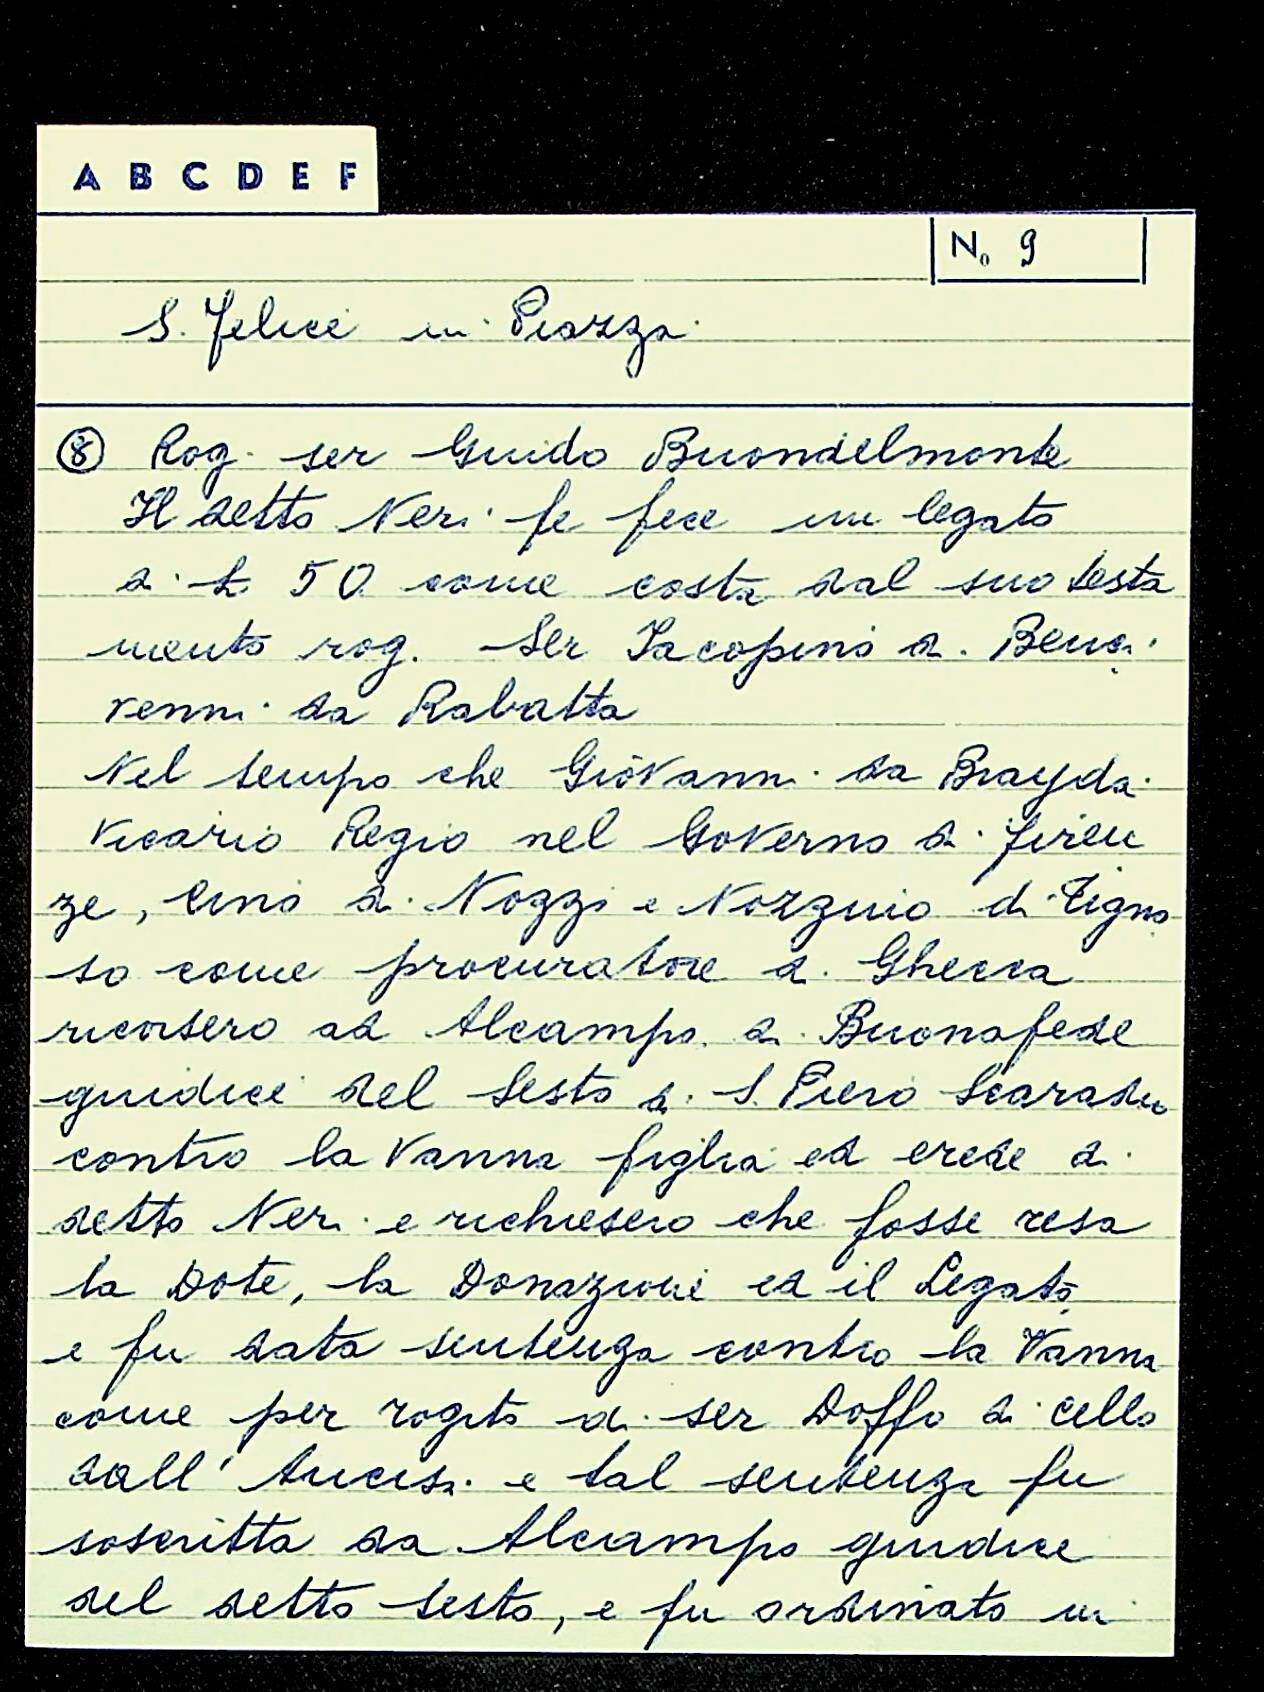 A B C D E F
No 9
S. Felice in Piazza
⑧ Rog. ser Guido Buondelmonte
Il detto Neri fe fece un legato
di £ 50 come costa dal suo testa
mento rog. Ser Iacopino di Benci
venni da Rabatta
Nel tempo che Giovanni da Brayda
Vicario Regio nel Governo di Firen
ze, Cino di Nozzo e Nozzino di Tigno
so come procuratore di Ghecca
ricorsero ad Alcampo di Buonafede
giudice del Sesto di S. Piero Scaradio
contro la Vanna figlia ed erede di
detto Neri e richiesero che fosse resa
la Dote, la Donazione ed il Legato
e fu data sentenza contro la Vanna
come per rogito di ser Doffo di Cello
dall' Ancisa e tal sentenza fu
soscritta da Alcampo giudice
del detto Sesto, e fu ordinato in